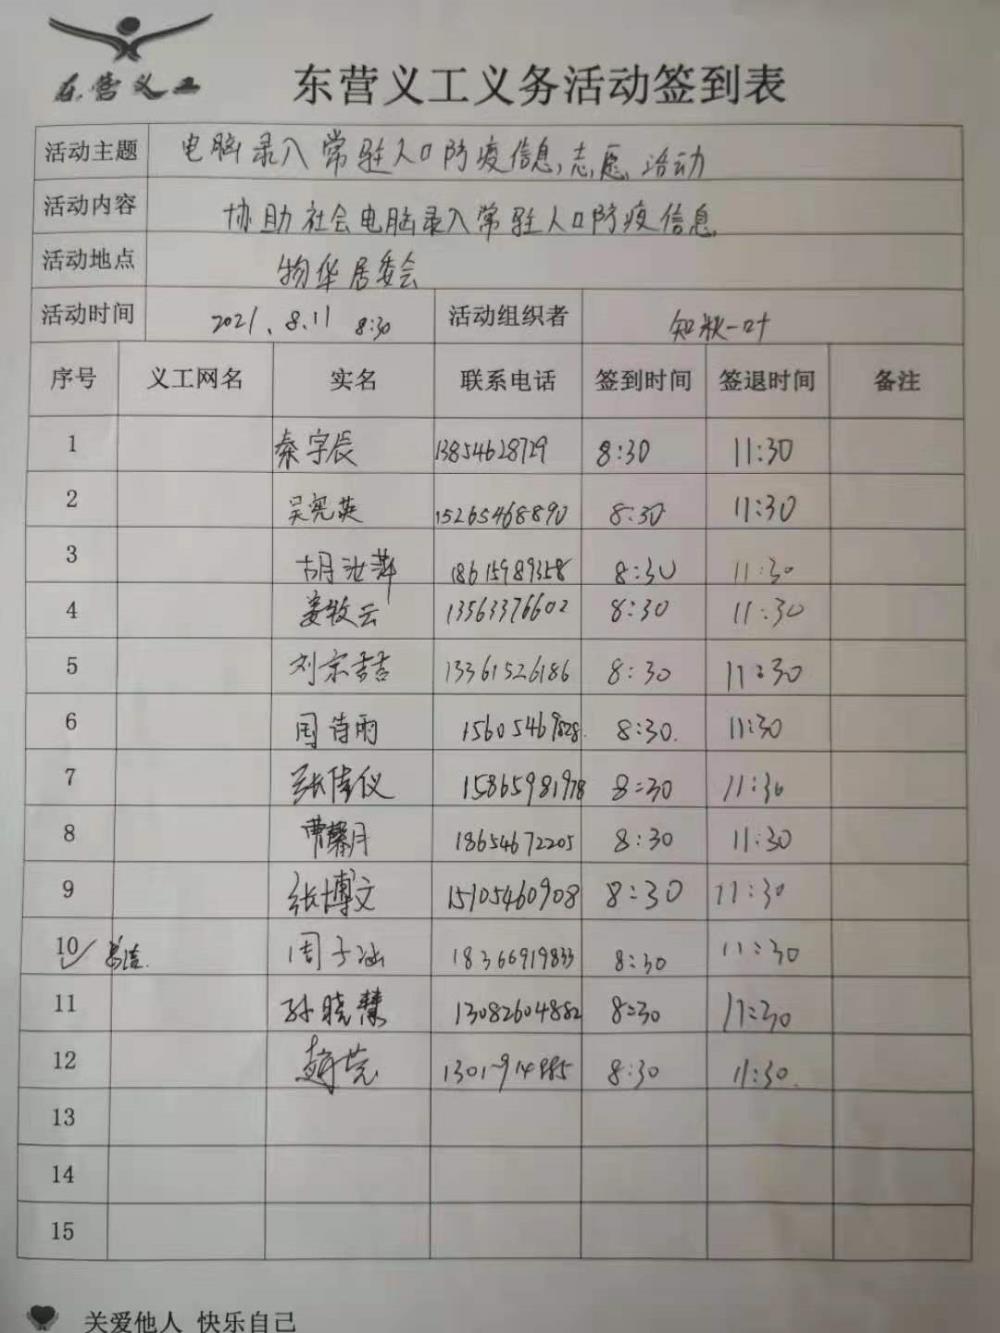 东营义工
东营义工义务活动签到表
活动主题 电脑录入常驻人口防疫信息,志愿活动
活动内容 协助社会电脑录入常驻人口防疫信息
活动地点 物华居委会
活动时间 2021.8.11 8:30 活动组织者 知秋一叶
序号 义工网名 实名 联系电话 签到时间 签退时间 备注
1 秦宇辰 13854628729 8:30 11:30
2 吴宪英 15265468890 8:30 11:30
3 胡 萍 18615989358 8:30 11:30
4 姜牧云 13563376602 8:30 11:30
5 刘宗喆 13361526186 8:30 11:30
6 周诗雨 15605469828. 8:30. 11:30
7 张倩仪 15865981978 8:30 11:30
8 曹馨月 18654672205 8:30 11:30
9 张博文 15105460908 8:30 11:30
10 周子涵 18366919833 8:30 11:30
11 孙晓慧 13082604882 8:30 11:30
12 8:30 11:30.
13
14
15
关爱他人 快乐自己